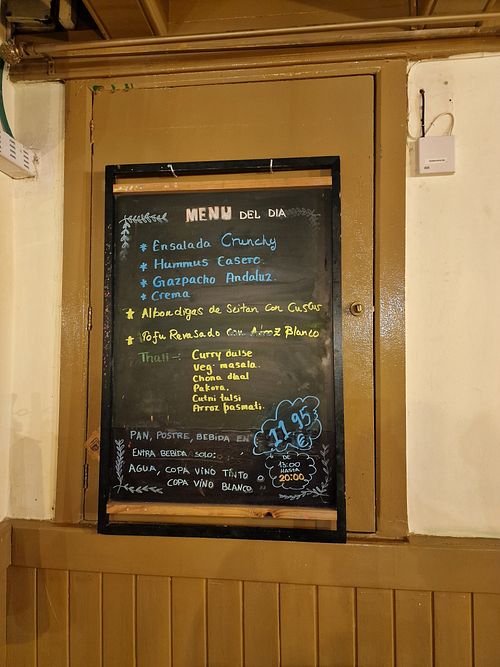 MENU DEL DIA
* Ensalada Crunchy
* Hummus Casero.
* Gazpacho Andaluz.
* Crema
* Albondigas de Seitan con Cuscus
* Tofu Revasado con Arroz Blanco
Thali -: Curry dulse
Veg. masala.
Chona dhal
Pakora.
Cutni tulsi
Arroz pasmati.
PAN, POSTRE, BEBIDA EN
11,95 €
ENTRA BEBIDA SOLO:
AGUA, COPA VINO TINTO O
COPA VINO BLANCO
DE
13:00
HASTA
20:00